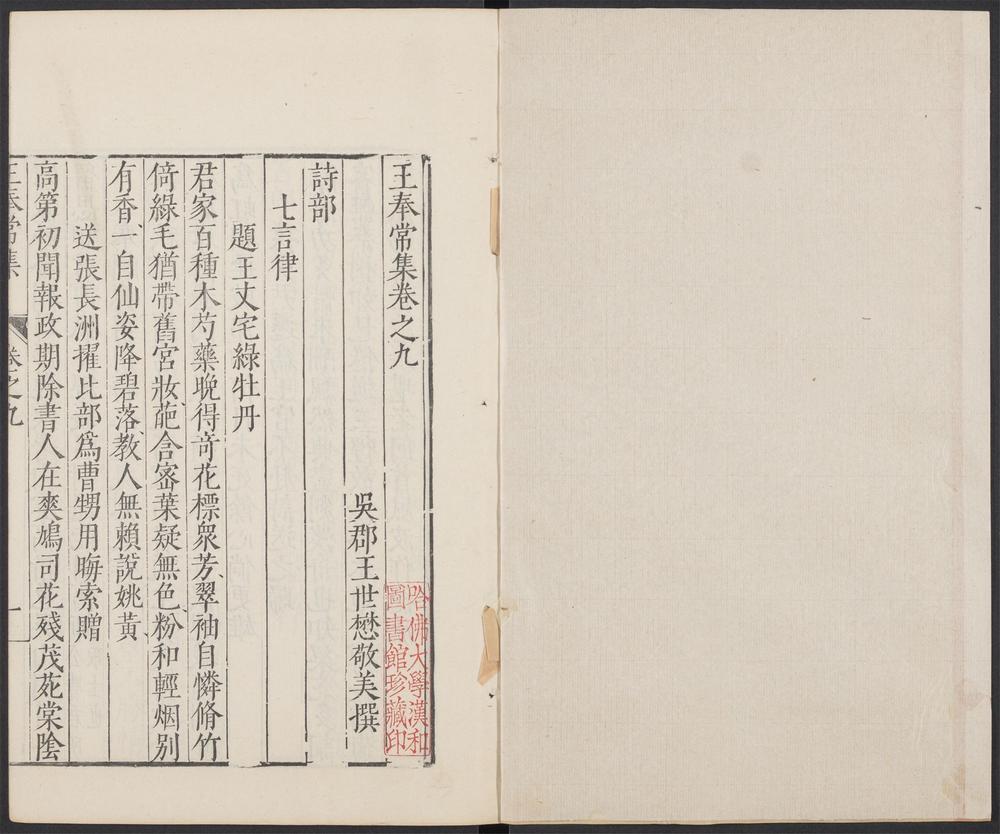 王奉常集卷之九
哈佛大學漢和
圖書館珍藏印
吳郡王世懋敬美撰
詩部
七言律
題王丈宅綠牡丹
君家百種木芍藥晚得竒花標衆芳翠袖自憐脩竹
倚綠毛猶帶舊宮妝葩含宻葉疑無色粉和輕烟别
有香一自仙姿降碧落教人無賴說姚黃
送張長洲擢比部爲曹甥用晦索贈
高第初聞報政期除書人在爽鳩司花殘茂苑棠陰
王奉常集
卷之九
一